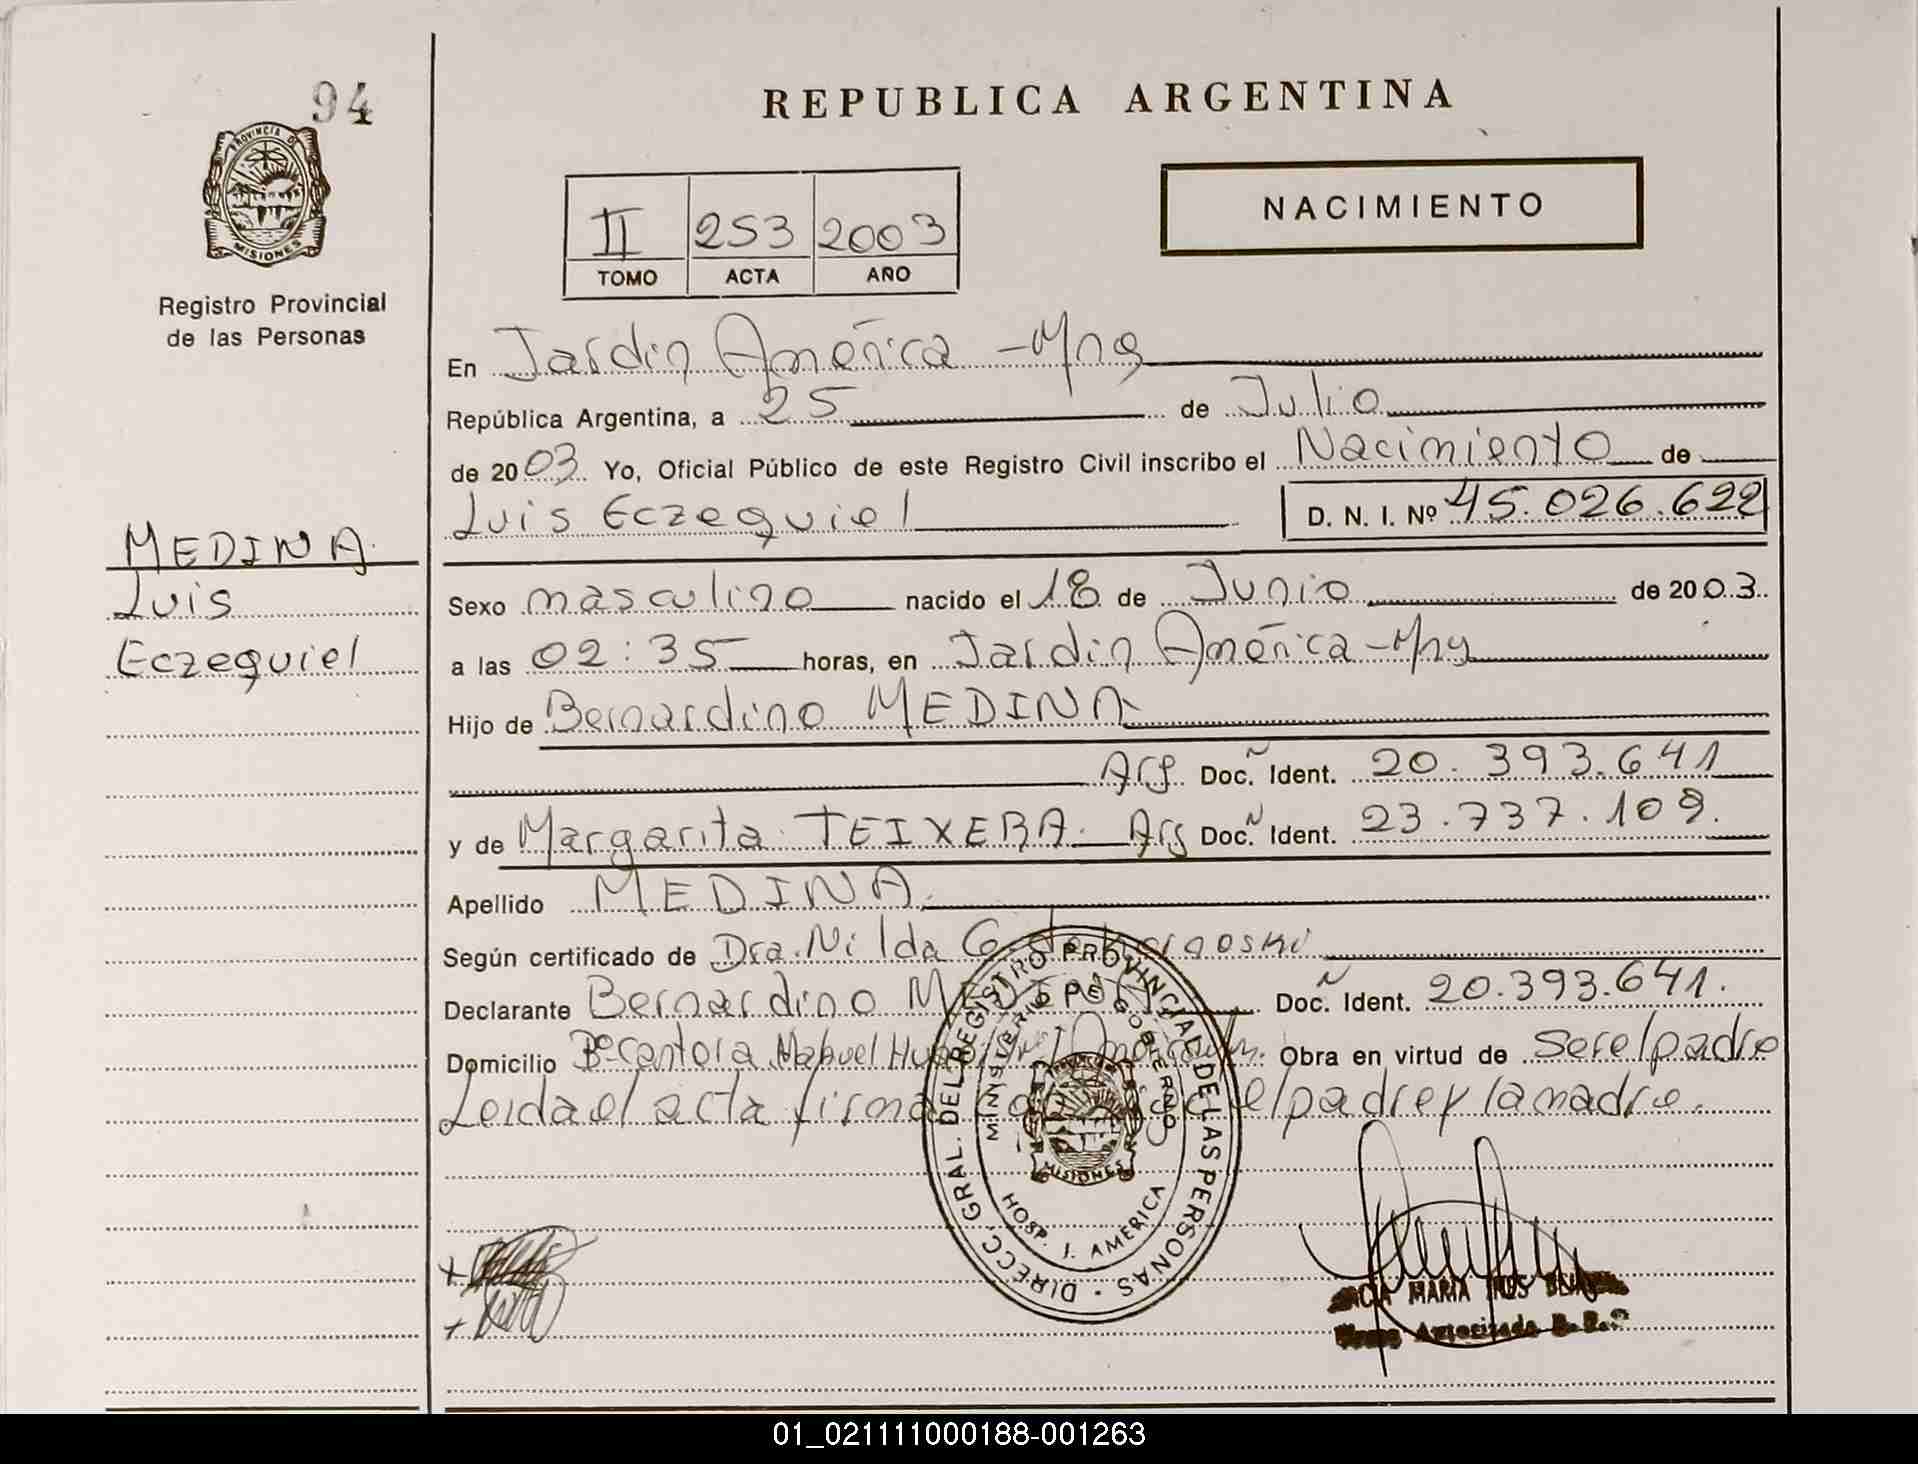 94
PROVINCIA DE
MISIONES
Registro Provincial
de las Personas
REPUBLICA ARGENTINA
II 253 2003
TOMO ACTA AÑO
NACIMIENTO
En Jardin América - Mns
República Argentina, a 25 de Julio
de 2003 Yo, Oficial Público de este Registro Civil inscribo el Nacimiento de
Luis Eczequiel D. N. I. Nº 45.026.622
MEDINA
Luis
Eczequiel
Sexo masculino nacido el 18 de Junio de 2003.
a las 02:35 horas, en Jardin América - Mns
Hijo de Bernardino MEDINA
Arg Doc. Ident. 20.393.641
y de Margarita TEIXERA. Arg Doc. Ident. 23.737.109.
Apellido MEDINA.
Según certificado de Dra. Nilda G.
Declarante Bernardino Doc. Ident. 20.393.641.
Domicilio Bº Cantora Manuel Obra en virtud de ser el padre
Leida el acta el padre y la madre.
DIRECC. GRAL. DEL REGISTRO PROVINCIAL DE LAS PERSONAS
MINISTERIO DE GOBIERNO
MISIONES
HOSP. J. AMERICA
MARIA INES
Autorizada
01_021111000188-001263